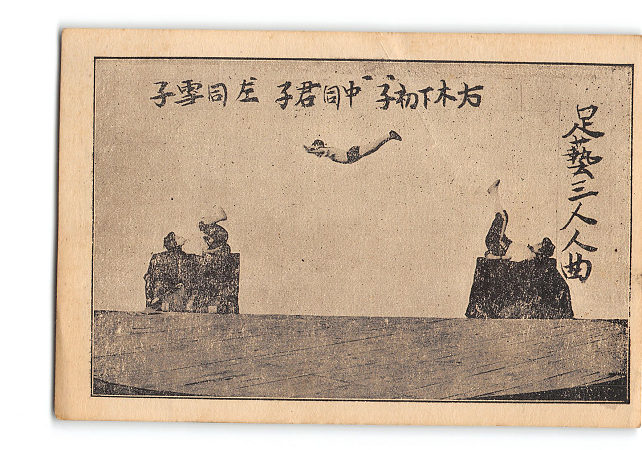 足藝三人人曲
右木下初子 中同君子 左同雪子